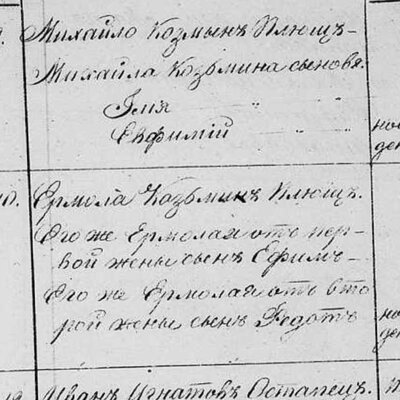 Михайло Козминъ Плющъ
Михайла Козьмина сыновя
Илия
Евфимій
Ермола Козьминъ Плющъ.
Его же Ермолая отъ пер-
вой жены сынъ Ефимъ
Его же Ермолая отъ вто
рой жены сынъ Федотъ
Иванъ Игнатовъ Остапецъ.